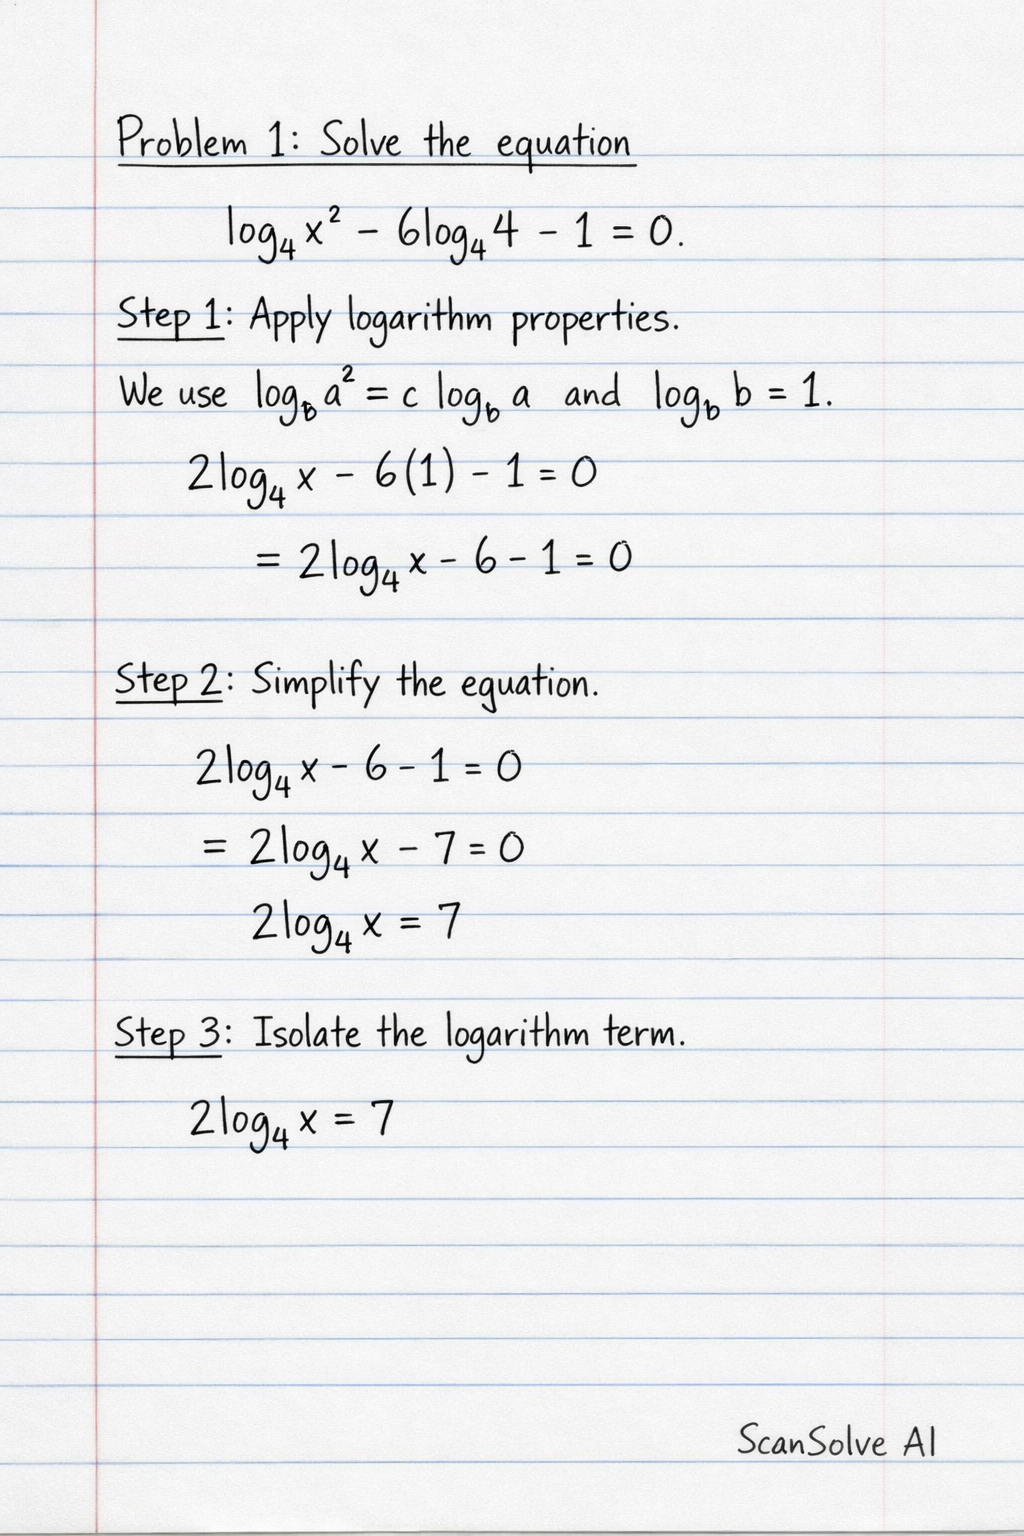 Problem 1: Solve the equation
log₄ x² − 6log₄ 4 − 1 = 0.
Step 1: Apply logarithm properties.
We use log_b a² = c log_b a and log_b b = 1.
2log₄ x − 6(1) − 1 = 0
= 2log₄ x − 6 − 1 = 0
Step 2: Simplify the equation.
2log₄ x − 6 − 1 = 0
= 2log₄ x − 7 = 0
2log₄ x = 7
Step 3: Isolate the logarithm term.
2log₄ x = 7
ScanSolve AI